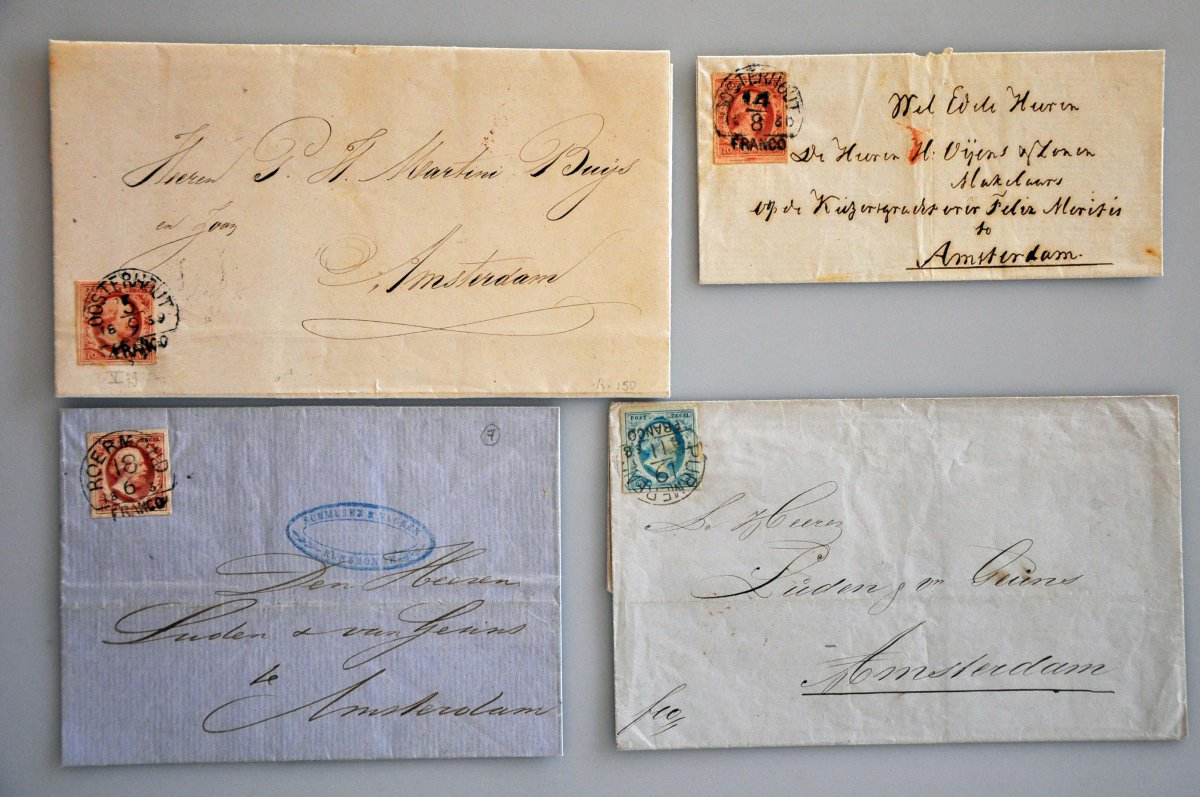 Heeren P. H. Martini Buijs
en Zoon
Amsterdam
OOSTERHOUT
5
9
FRANCO
V 79
150
OOSTERHOUT
14
8
60
FRANCO
Wel Edele Heeren
De Heeren H: Oÿens & Zonen
Makelaars
op de Keizersgracht over Felix Meritis
to
Amsterdam.
ROERMOND
18
6
FRANCO
Den Heeren
Luden & van Geuns
te
Amsterdam
POST ZEGEL
PURMEREND
FRANCO
D. Heeren
Luden & vn Geuns
Amsterdam
fco